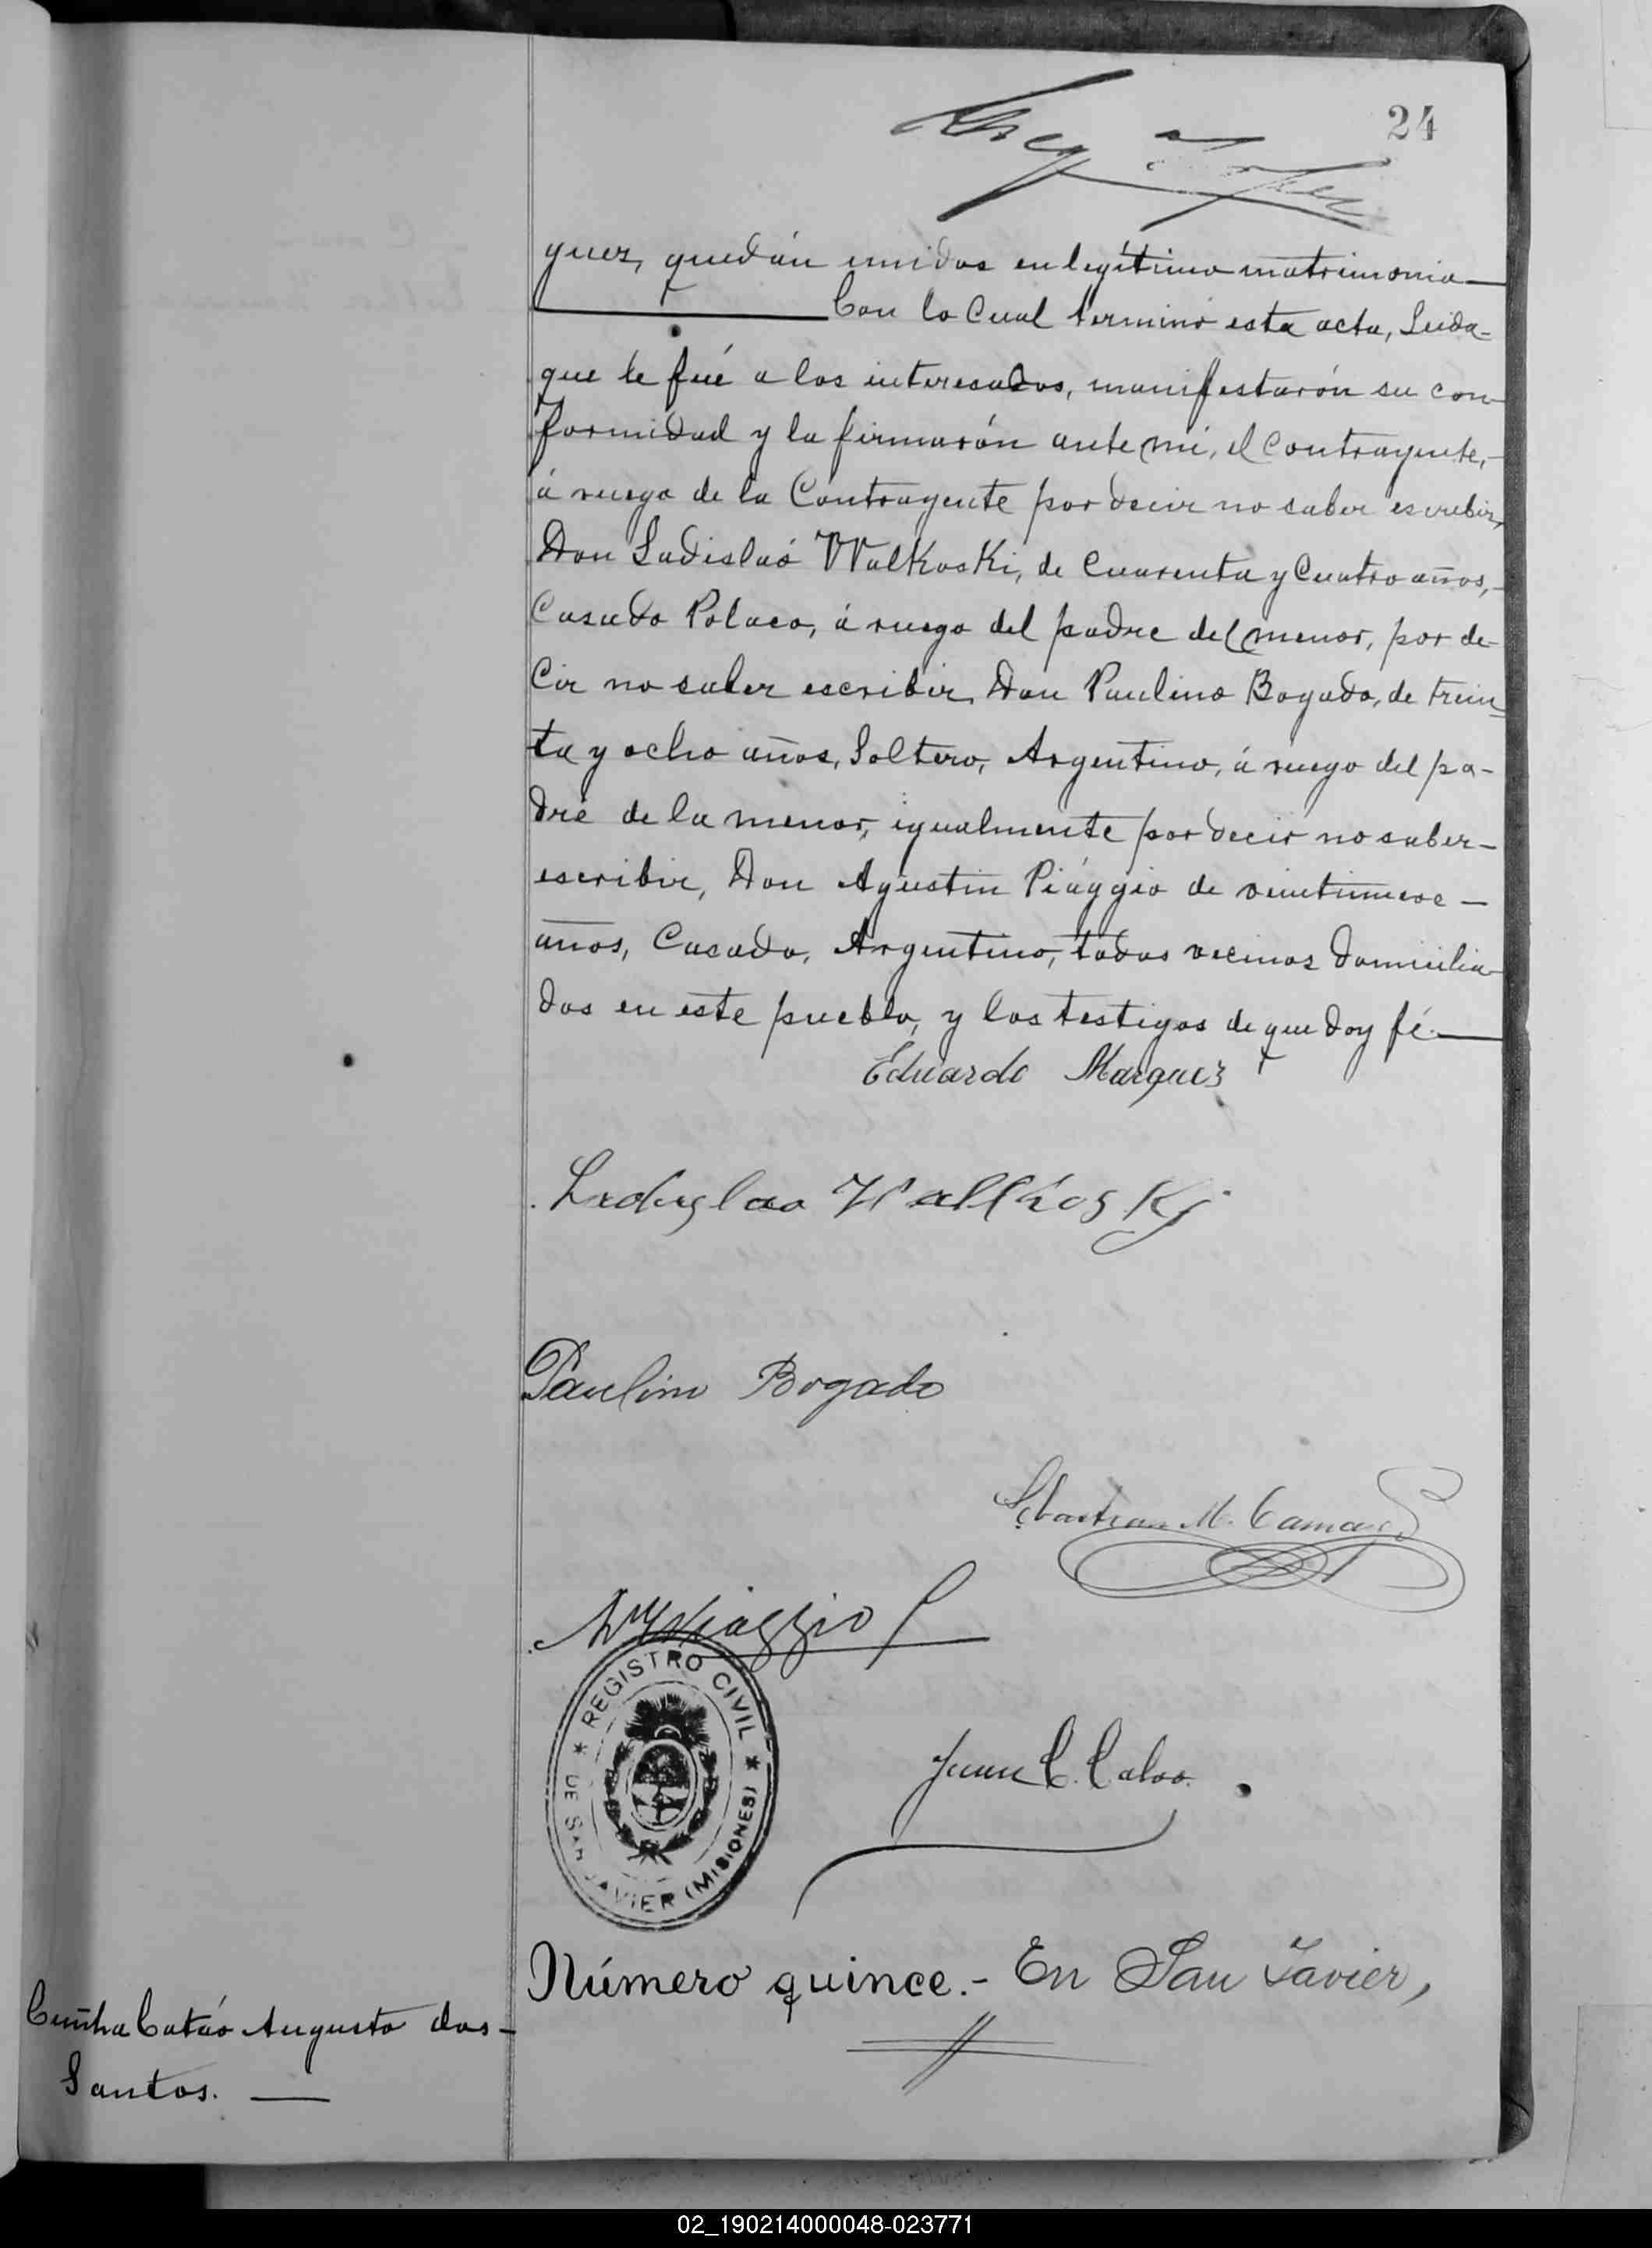 24
quez, quedán unidos en legítimo matrimonio
Con lo Cual terminó esta acta, Leida
que le fué a los interesados, manifestarón su con
formidad y la firmarón ante mi, el Contrayente,
á ruego de la Contrayente por decir no saber escribir,
Don Ladislaó Walkoski, de Cuarenta y Cuatro años,
Casado Polaco, á ruego del padre del menor, por de-
Cir no saber escribir, Don Paulino Bogado, de trein
ta y ocho años, Soltero, Argentino, á ruego del pa-
dre de la menor, igualmente por decir no saber
escribir, Don Agustin Piággio de veintinueve
años, Casado, Argentino, todos vecinos domicilia
dos en este pueblo, y los testigos de que doy fé.
Eduardo Marquez
Ladislao Walkoski
Paulino Bogado
Sebastian M. Camargo
Piaggio
REGISTRO CIVIL
DE SAN JAVIER (MISIONES)
Juan C. Calvo.
Número quince.- En San Javier,
Cunha Catáo Augusto dos-
Santos.
02_190214000048-023771